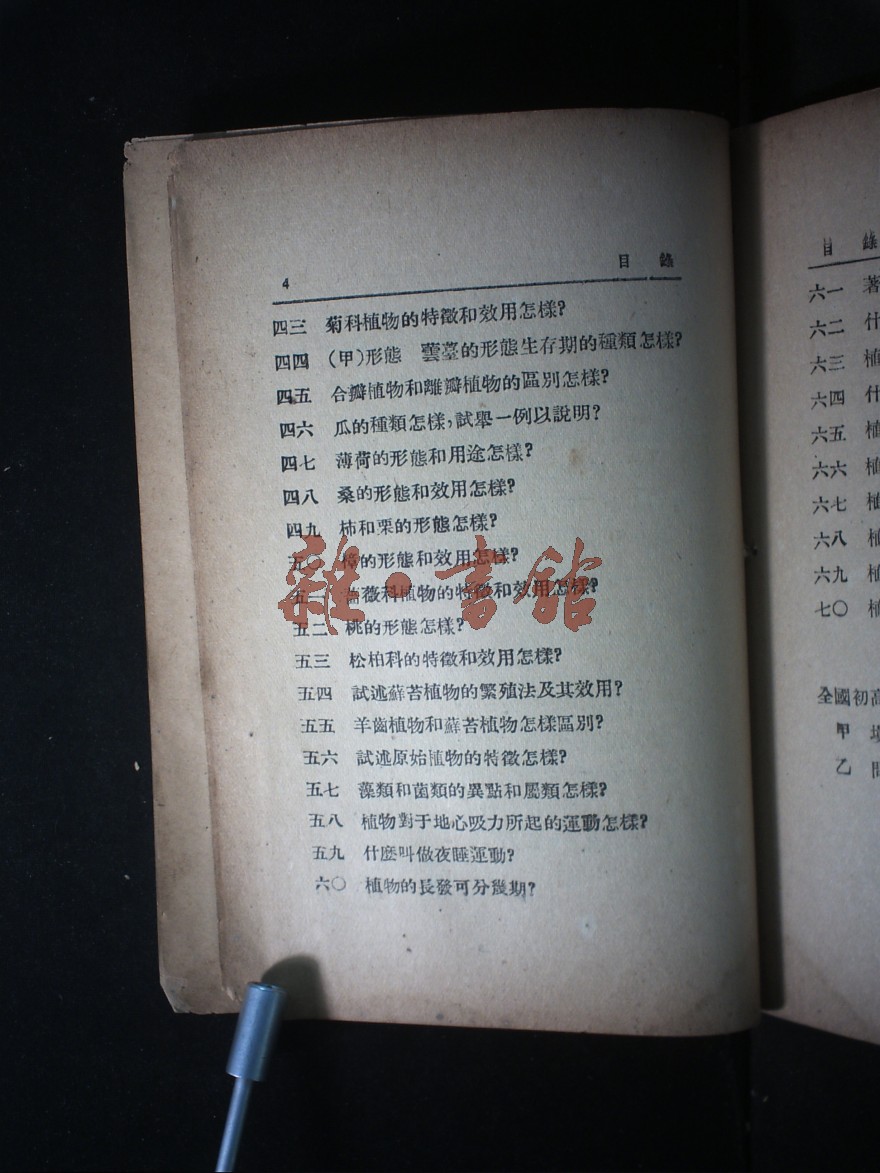 4 目 錄
四三 菊科植物的特徵和效用怎樣?
四四 (甲)形態 雲薹的形態生存期的種類怎樣?
四五 合瓣植物和離瓣植物的區別怎樣?
四六 瓜的種類怎樣,試舉一例以說明?
四七 薄荷的形態和用途怎樣?
四八 桑的形態和效用怎樣?
四九 柿和栗的形態怎樣?
五〇 樟的形態和效用怎樣?
五一 薔薇科植物的特徵和效用怎樣?
五二 桃的形態怎樣?
五三 松柏科的特徵和效用怎樣?
五四 試述蘚苔植物的繁殖法及其效用?
五五 羊齒植物和蘚苔植物怎樣區別?
五六 試述原始植物的特徵怎樣?
五七 藻類和菌類的異點和屬類怎樣?
五八 植物對于地心吸力所起的運動怎樣?
五九 什麼叫做夜睡運動?
六〇 植物的長發可分幾期?
雜·書館
目 錄
六一 著
六二 什
六三 植
六四 什
六五 植
六六 植
六七 植
六八 植
六九 植
七〇 植
全國初高
甲
乙